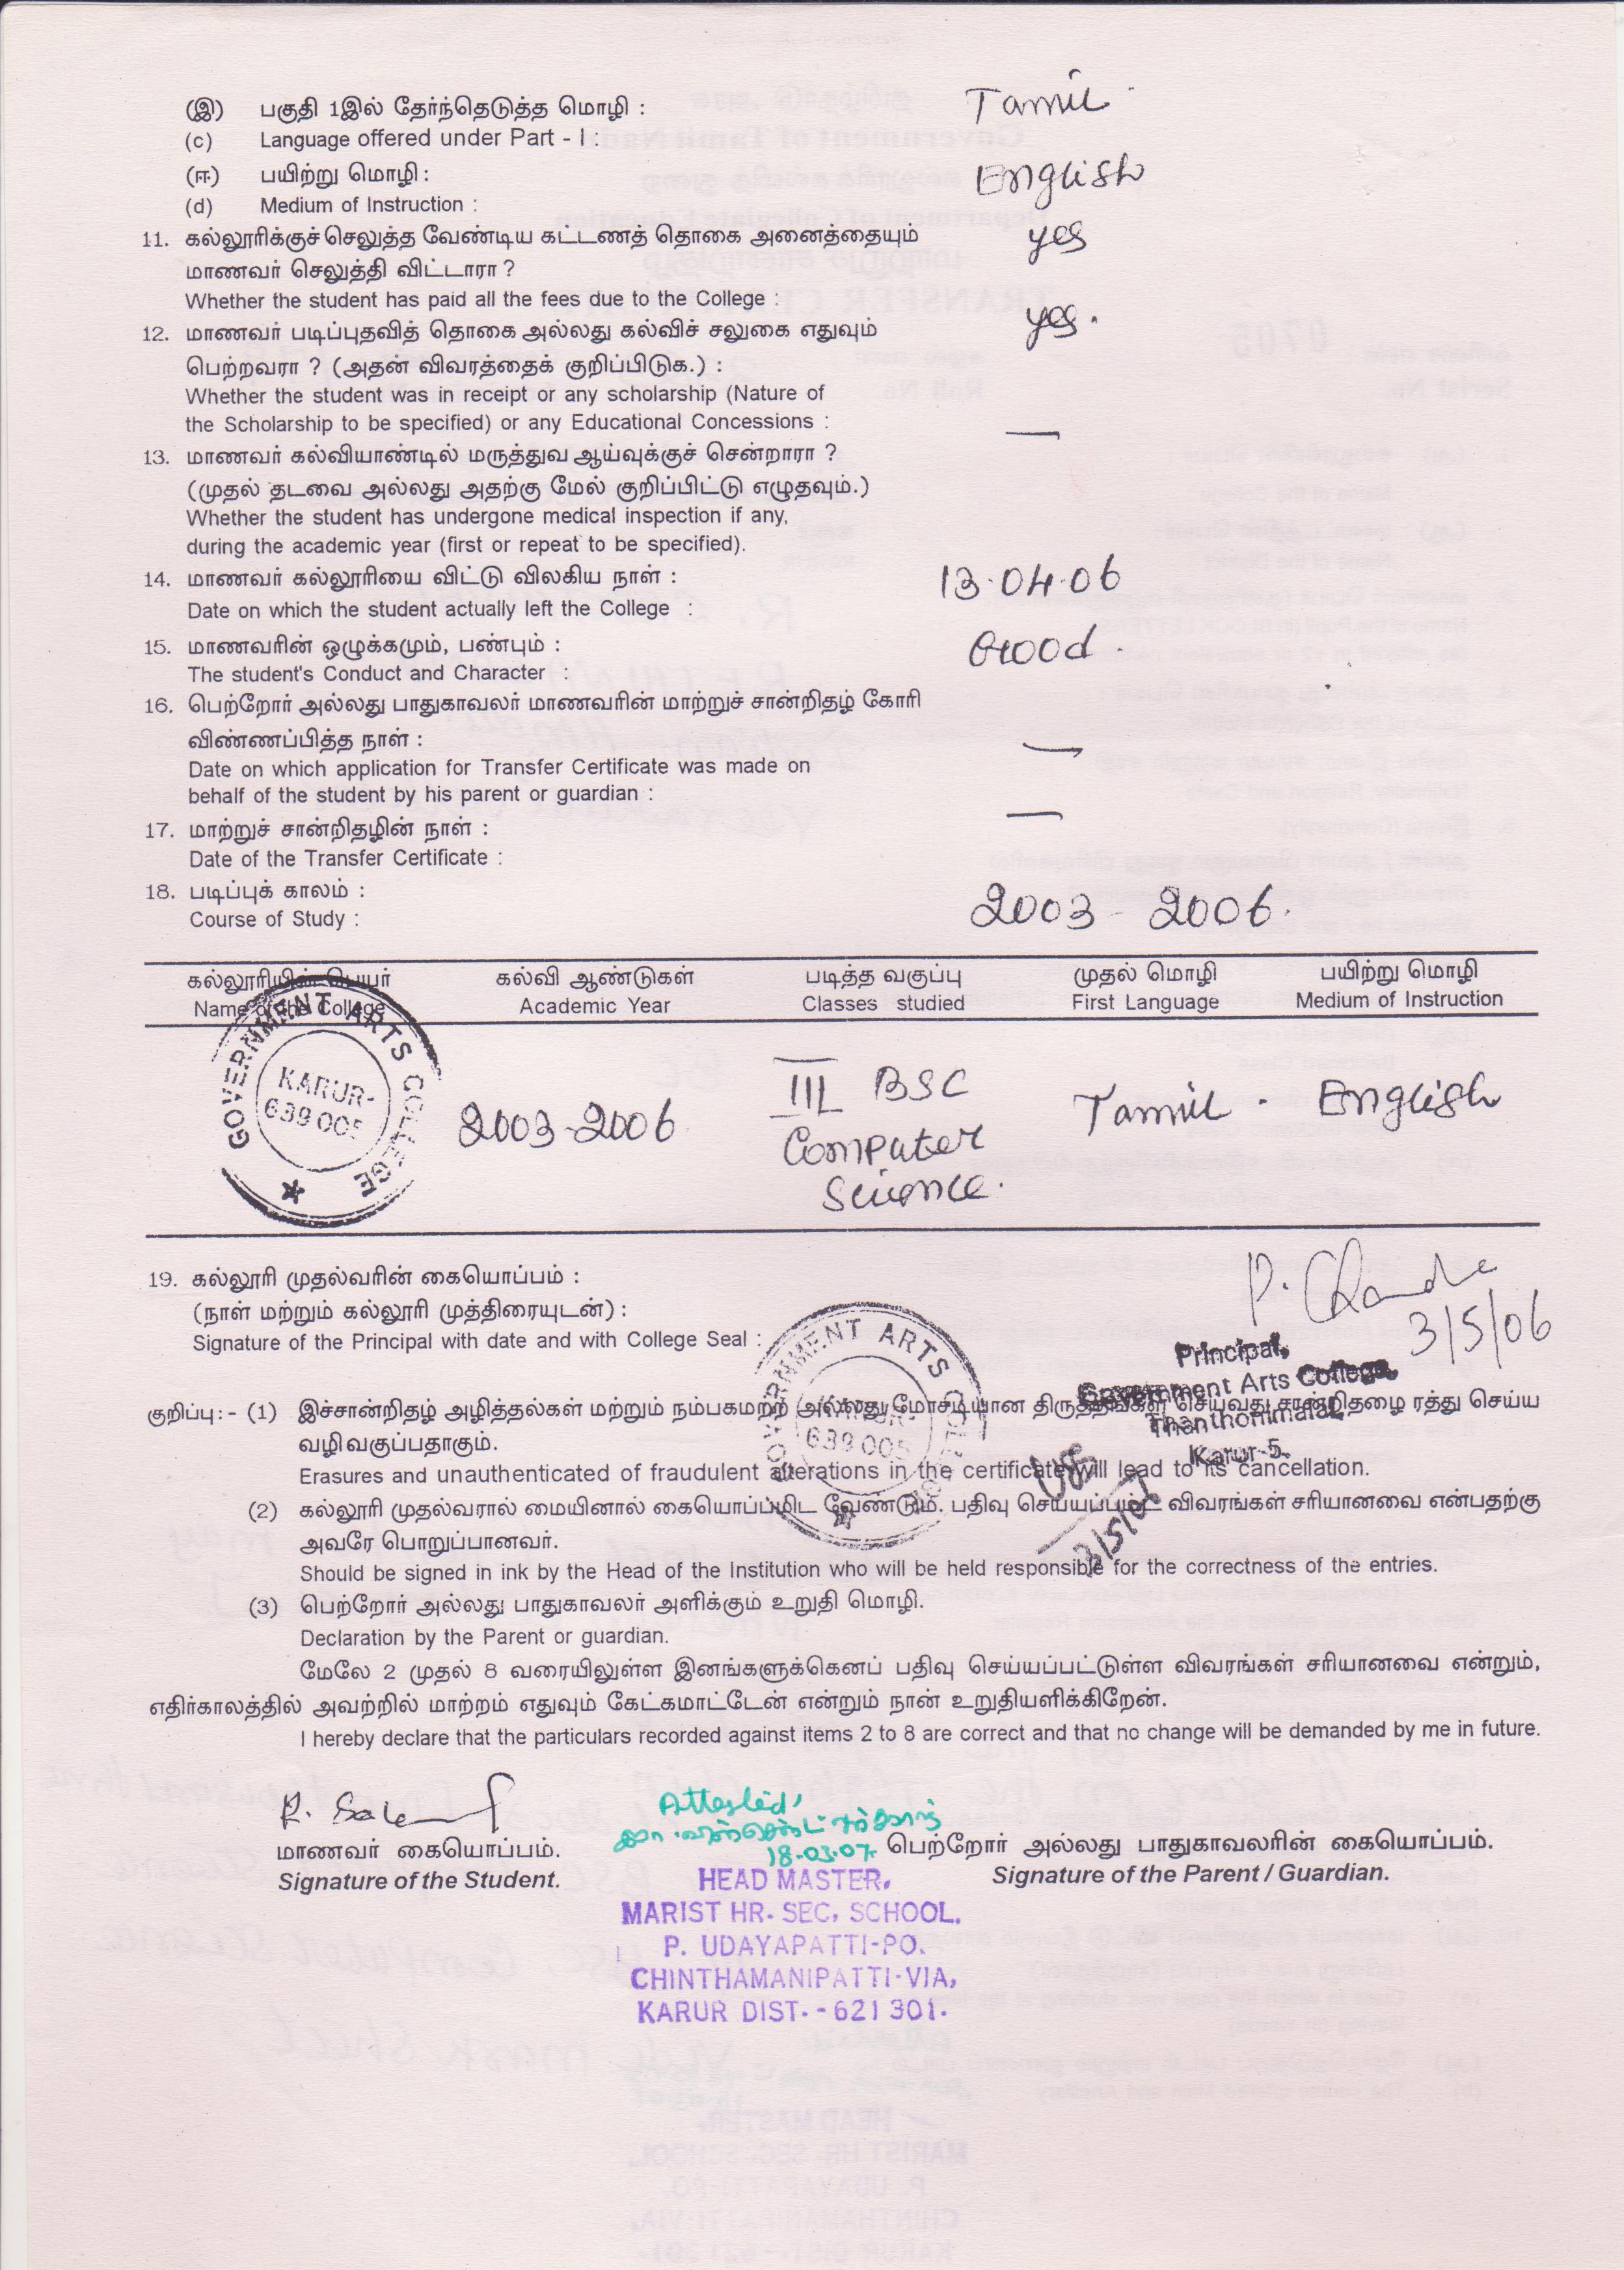 (இ) பகுதி 1இல் தேர்ந்தெடுத்த மொழி : Tamil
(c) Language offered under Part - I :
(ஈ) பயிற்று மொழி : English
(d) Medium of Instruction :
11. கல்லூரிக்குச் செலுத்த வேண்டிய கட்டணத் தொகை அனைத்தையும் yes
மாணவர் செலுத்தி விட்டாரா ?
Whether the student has paid all the fees due to the College :
12. மாணவர் படிப்புதவித் தொகை அல்லது கல்விச் சலுகை எதுவும் yes.
பெற்றவரா ? (அதன் விவரத்தைக் குறிப்பிடுக.) :
Whether the student was in receipt or any scholarship (Nature of
the Scholarship to be specified) or any Educational Concessions : —
13. மாணவர் கல்வியாண்டில் மருத்துவ ஆய்வுக்குச் சென்றாரா ?
(முதல் தடவை அல்லது அதற்கு மேல் குறிப்பிட்டு எழுதவும்.)
Whether the student has undergone medical inspection if any,
during the academic year (first or repeat to be specified).
14. மாணவர் கல்லூரியை விட்டு விலகிய நாள் : 13.04.06
Date on which the student actually left the College :
15. மாணவரின் ஒழுக்கமும், பண்பும் : Good.
The student's Conduct and Character :
16. பெற்றோர் அல்லது பாதுகாவலர் மாணவரின் மாற்றுச் சான்றிதழ் கோரி
விண்ணப்பித்த நாள் : —
Date on which application for Transfer Certificate was made on
behalf of the student by his parent or guardian :
17. மாற்றுச் சான்றிதழின் நாள் : —
Date of the Transfer Certificate :
18. படிப்புக் காலம் : 2003 - 2006.
Course of Study :
கல்லூரியின் பெயர் கல்வி ஆண்டுகள் படித்த வகுப்பு முதல் மொழி பயிற்று மொழி
Name of the College Academic Year Classes studied First Language Medium of Instruction
GOVERNMENT ARTS COLLEGE
KARUR-
639 005
2003-2006 III BSC Tamil - English
Computer
Science.
19. கல்லூரி முதல்வரின் கையொப்பம் :
(நாள் மற்றும் கல்லூரி முத்திரையுடன்) : 3/5/06
Signature of the Principal with date and with College Seal :
GOVERNMENT ARTS
639 005
Principal,
Government Arts College
Thanthonimalai,
Karur-5.
3/5/06
குறிப்பு :- (1) இச்சான்றிதழ் அழித்தல்கள் மற்றும் நம்பகமற்ற அல்லது மோசடியான திருத்தங்கள் செய்வது சான்றிதழை ரத்து செய்ய
வழிவகுப்பதாகும்.
Erasures and unauthenticated of fraudulent alterations in the certificate will lead to its cancellation.
(2) கல்லூரி முதல்வரால் மையினால் கையொப்பமிட வேண்டும். பதிவு செய்யப்பட்ட விவரங்கள் சரியானவை என்பதற்கு
அவரே பொறுப்பானவர்.
Should be signed in ink by the Head of the Institution who will be held responsible for the correctness of the entries.
(3) பெற்றோர் அல்லது பாதுகாவலர் அளிக்கும் உறுதி மொழி.
Declaration by the Parent or guardian.
மேலே 2 முதல் 8 வரையிலுள்ள இனங்களுக்கெனப் பதிவு செய்யப்பட்டுள்ள விவரங்கள் சரியானவை என்றும்,
எதிர்காலத்தில் அவற்றில் மாற்றம் எதுவும் கேட்கமாட்டேன் என்றும் நான் உறுதியளிக்கிறேன்.
I hereby declare that the particulars recorded against items 2 to 8 are correct and that no change will be demanded by me in future.
Attested
18.03.07.
மாணவர் கையொப்பம். பெற்றோர் அல்லது பாதுகாவலரின் கையொப்பம்.
Signature of the Student. Signature of the Parent / Guardian.
HEAD MASTER.
MARIST HR. SEC. SCHOOL.
P. UDAYAPATTI-PO.
CHINTHAMANIPATTI-VIA,
KARUR DIST. - 621 301.